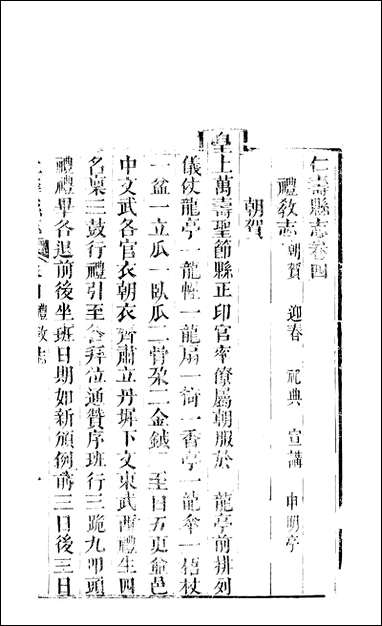 仁壽縣志卷四
禮教志 朝賀 迎春 祀典 宣講 申明亭
朝賀
皇上萬壽聖節縣正印官率僚屬朝服於 龍亭前排列
儀仗龍亭一龍幄一龍扇一 一香亭一龍傘一梧杖
一盆一立瓜一臥瓜二骨朶二金鉞二至日五更 邑
中文武各官衣朝衣齊肅立丹墀下文東武西禮生四
名稟三鼓行禮引至各拜位通贊序班行三跪九叩頭
禮禮畢各退前後坐班日期如新頒例前三日後三日
禮教志
一